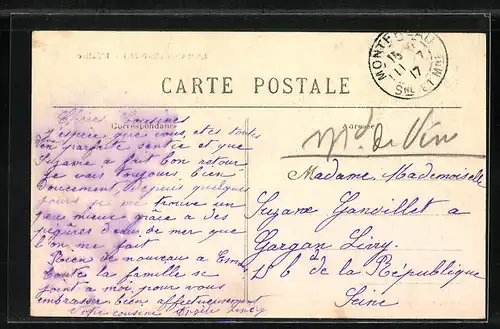 CARTE POSTALE
Correspondance
Adresse
MONTEREAU
17
SNE ET MNE
Chères Cousines
J'espère que vous êtes toutes
en parfaite santée et que
Suzanne a fait bon retour
Je vais toujours bien
doucement, depuis quelques
jours je me trouve un
peu mieux grâce a des
piqûres d'eau de mer que
l'on me fait
Rien de nouveau a
toute la famille se
joint a moi pour vous
embrasser bien affectueusement
Votre cousine
Madame Mademoiselle
Suzanne Ganvillet a
Gargan Livry
de la République
Seine